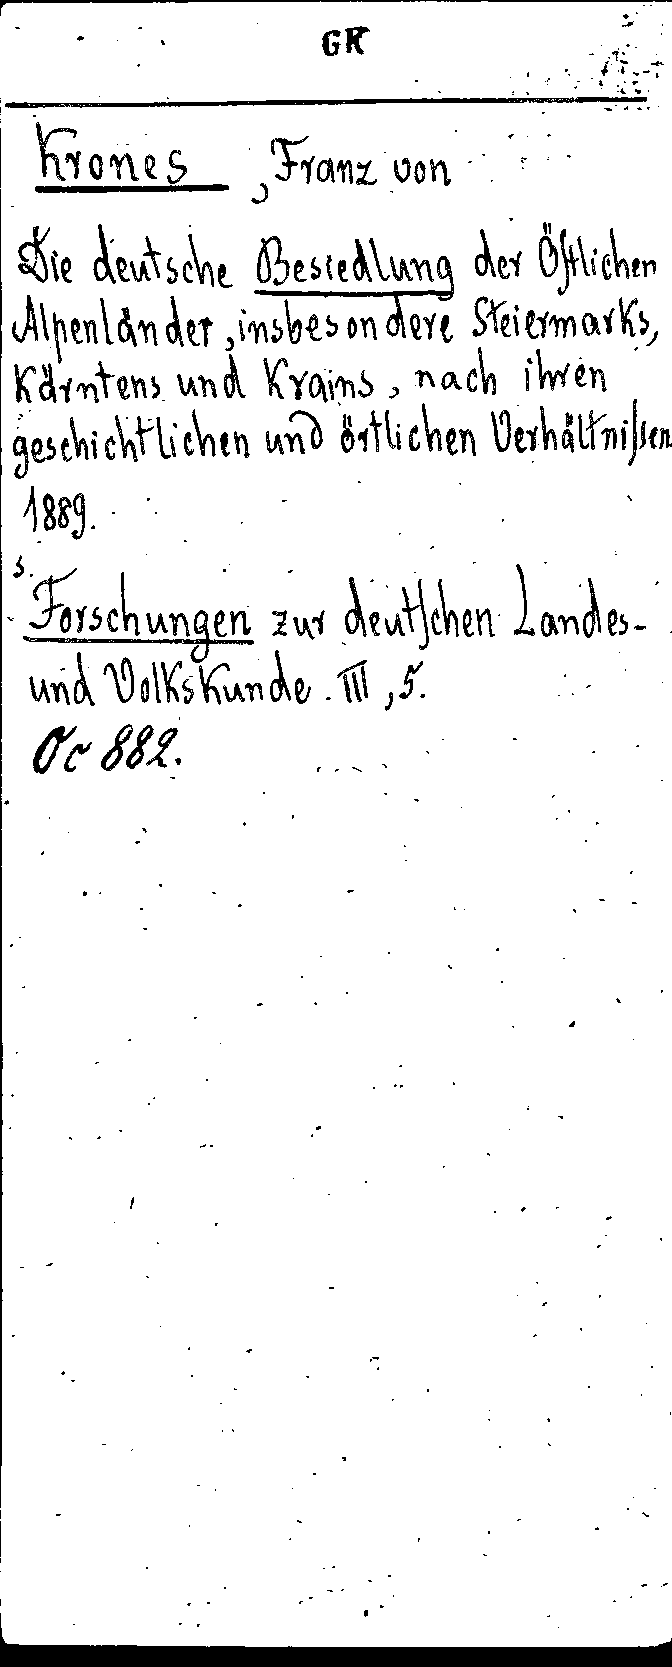 GK
Krones, Franz von
Die deutsche Besiedlung der Öſtlichen
Alpenländer, insbesondere Steiermarks,
Kärntens und Krains, nach ihren
geschichtlichen und örtlichen Verhältniſsen
1889.
s.
Forschungen zur deutſchen Landes-
und Volkskunde. III, 5.
Oc 882.